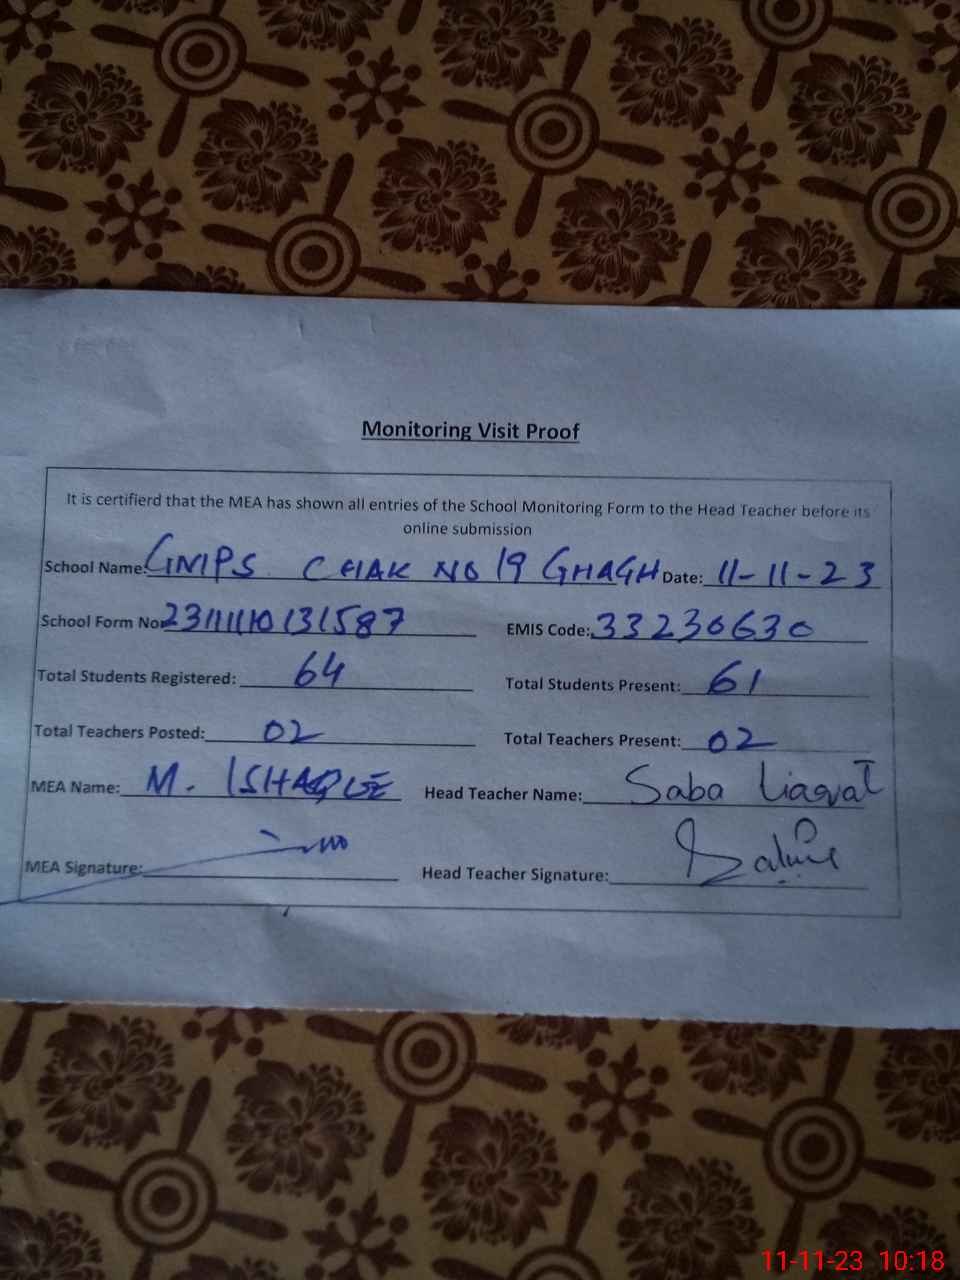 Monitoring Visit Proof
It is certifierd that the MEA has shown all entries of the School Monitoring Form to the Head Teacher before its
online submission
School Name: GMPS CHAK NO 19 GHAGH Date: 11-11-23
School Form No: EMIS Code: 33230630
Total Students Registered: 64 Total Students Present: 61
Total Teachers Posted: 02 Total Teachers Present: 02
MEA Name: M. ISHAQUE Head Teacher Name: Saba Liaqat
MEA Signature: Head Teacher Signature:
11-11-23 10:18